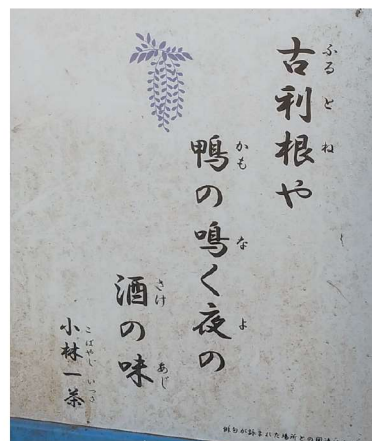 古利根や
ふるとね
鴨の鳴く夜の
かも な よ
酒の味
さけ あじ
小林一茶
こばやし いっさ